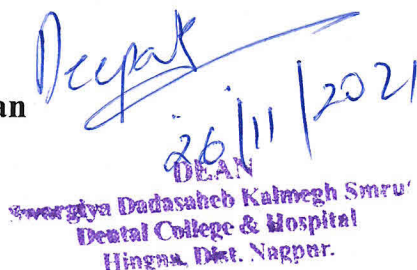 Deepak
an
26/11/2021
DEAN
Swargiya Dadasaheb Kalmegh Smru'
Dental College & Hospital
Hingna, Dist. Nagpur.